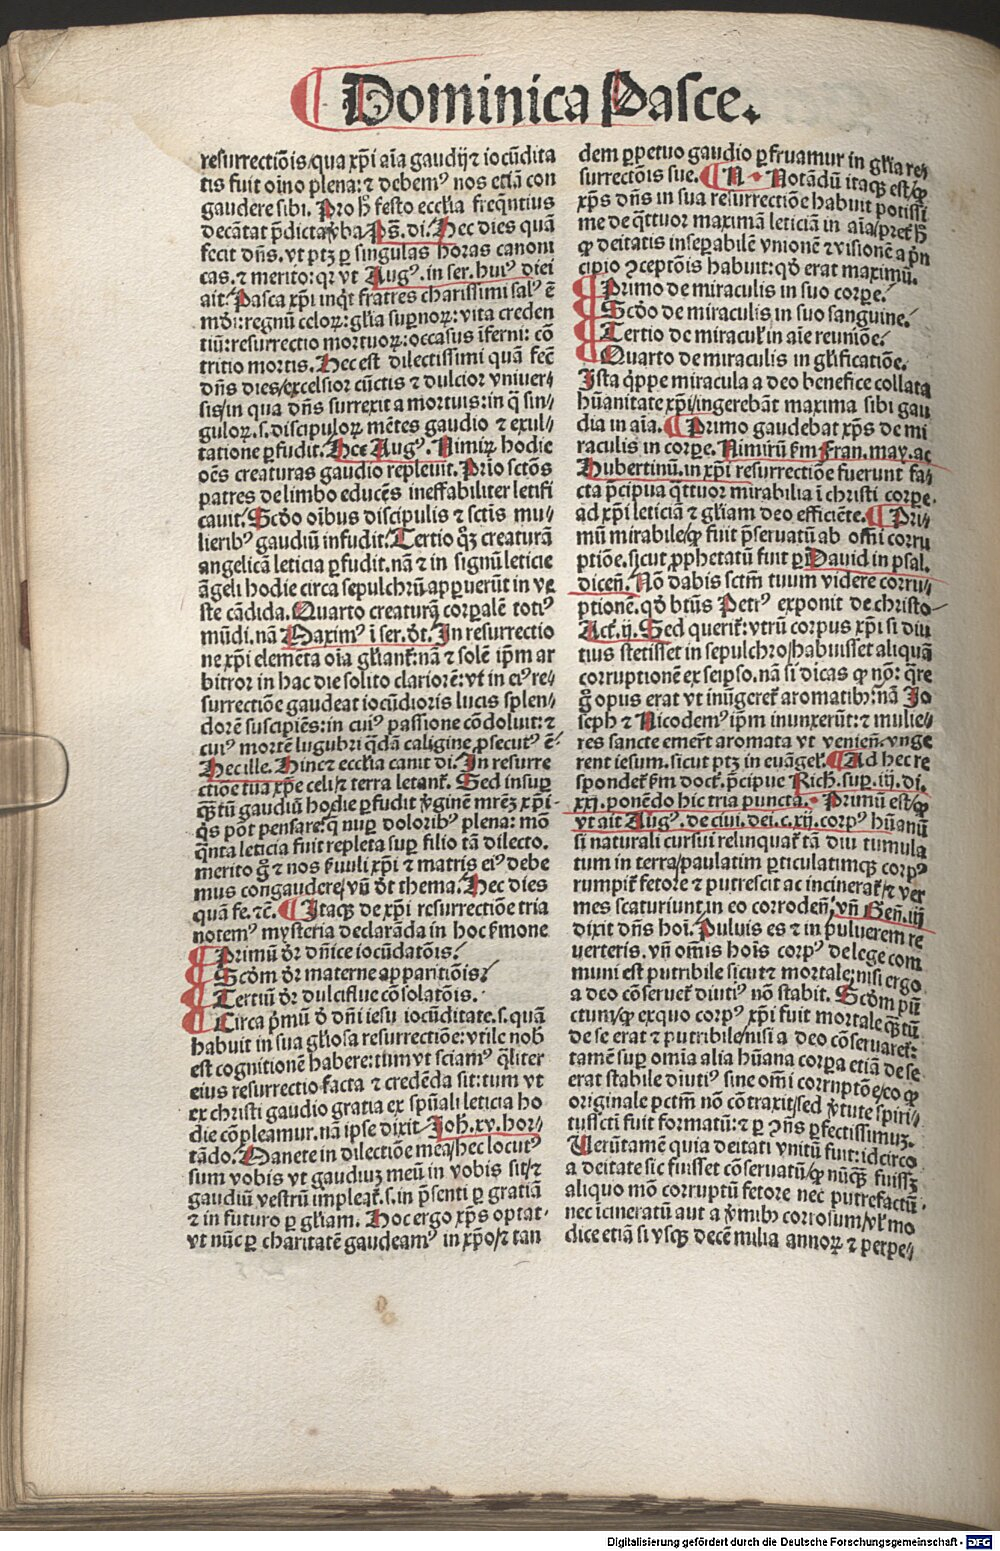 Dominica Pasce.
resurrectiõis/qua xp̃i aĩa gaudijꝫ ⁊ iocũdita
tis fuit oĩno plena: ⁊ debemꝰ nos etiã con
gaudere sibi. Pro h̊ festo eccĺia freq̃ntius
decãtat p̃dicta v̾ba. Ps̃. di. Hec dies quã
fecit dñs. vt ptꝫ ꝑ singulas horas canoni
cas. ⁊ merito: qꝛ vt Augꝰ. in ser. huiꝰ diei
ait. Pasca xp̃i inq̇t fratres charissimi salꝰ ẽ
mũdi: regnũ celoꝝ: gĺia suꝑnoꝝ: vita creden
tiũ: resurrectio mortuoꝝ: occasus ĩferni: cõ
tritio mortis. Hec est dilectissimi quã fec̃
dñs dies/excelsior cũctis ⁊ dulcior vniuer⸗
sis/in qua dñs surrexit a mortuis: in q̃ sin⸗
guloꝝ .s. discipuloꝝ mẽtes gaudio ⁊ exul⸗
tatione ꝑfudit. Hec Augꝰ. Nimiꝝ hodie
oẽs creaturas gaudio repleuit. Prio sctõs
patres de limbo educẽs ineffabiliter letifi
cauit. Scd̃o oĩbus discipulis ⁊ sctĩs mu⸗
lieribꝰ gaudiũ infudit. Tertio q̊ꝫ creaturã
angelicã leticia ꝑfudit. nã ⁊ in signũ leticie
ãgeli hodie circa sepulchrũ apꝑuerũt in ve
ste cãdida. Quarto creaturã corꝑalẽ totiꝰ
mũdi. nã Maximꝰ ĩ ser. d̾t. In resurrectio
ne xp̃i elemẽta oĩa gĺiant̃: nã ⁊ solẽ ip̃m ar
bitror in hac die solito clariorẽ: vt̾ in eiꝰ re⸗
surrectiõe gaudeat iocũdioris lucis splen⸗
dorẽ suscipiẽs: in cuiꝰ passione cõdoluit: ⁊
cuiꝰ mortẽ lugubri q̃dã caligine ꝓsecutꝰ ẽ⸗
Hec ille. Hinc ⁊ eccĺia canit di. In resurre
ctiõe tua xp̃e celi ⁊ terra letant̃. Sed insuꝑ
q̃ꝫtũ gaudiũ hodie ꝑfudit v̾ginẽ mrẽꝫ xp̃i⸗
q̇s põt pensare: q̃ nuꝑ doloribꝰ plena: mõ
q̃nta leticia fuit repleta suꝑ filio tã dilecto.
merito g̊ ⁊ nos f̃uuli xp̃i ⁊ matris eiꝰ debe
mus congaudere/vñ d̾t thema. Hec dies
quã fe. ⁊c̃. Itaqꝫ de xp̃i resurrectiõe tria
notemꝰ mysteria declarãda in hoc f̃mone
Primũ d̾r dñice iocũdatõis.
Scd̾m d̾r materne apꝑaritiõis.
Tertiũ d̾r dulciflue cõsolatõis.
Circa p̃mũ d̾ dñi iesu iocũditate .s. quã
habuit in sua gĺiosa resurrectiõe: vtile nob̾
est cognitionẽ habere: tum vt sciamꝰ q̃liter
eius resurrectio facta ⁊ credẽda sit: tum vt
ex christi gaudio gratia ex spũali leticia ho
die cõpleamur. nã ipse dixit Joh̃. xv. hor⸗
tãdo. Manete in dilectiõe mea/hec locutꝰ
sum vobis vt gaudiuꝫ meũ in vobis sit/⁊
gaudiũ vestrũ impleat̃ .s. in p̃senti ꝑ gratiã
⁊ in futuro ꝑ gĺiam. Hoc ergo xp̃s optat⸗
vt nũc ꝑ charitatẽ gaudeamꝰ in xp̃o/⁊ tan
dem ꝑpetuo gaudio ꝑfruamur in gĺia re⸗
surrectõis sue. N. Notãdũ itaqꝫ est/ꝙ
xp̃s dñs in sua resurrectiõe habuit potissi
me de q̃ttuor maximã leticiã in aĩa/pret̾ h̊
ꝙ deitatis inseꝑabilẽ vnionẽ ⁊ visionẽ a p̃n
cipio ꝯceptõis habuit: qd̾ erat maximũ.
Primo de miraculis in suo corꝑe.
Scd̃o de miraculis in suo sanguine.
Tertio de miracuĺ in aĩe reuniõe.
Quarto de miraculis in gĺificatiõe.
Ista q̇ppe miracula a deo benefice collata
hũanitate xp̃i/ingerebãt maxima sibi gau
dia in aĩa. Primo gaudebat xp̃s de mi
raculis in corꝑe. Nimirũ f̃m Fran. may. ac
Hubertinũ. in xp̃i resurrectiõe fuerunt fa⸗
cta p̃cipua q̃ttuor mirabilia ĩ christi corꝑe.
ad xp̃i leticiã ⁊ gĺiam deo efficiẽte. Pri⸗
mũ mirabile/ꝙ fuit p̃seruatũ ab om̃i corru
ptiõe. sicut ꝓphetatũ fuit ꝑ Dauid in psal.
dicẽñ. Nõ dabis sctm̃ tuum videre corru⸗
ptionẽ. qd̾ btũs Petrꝰ exponit de christo
Act̃. ij. Sed querit̃: vtrũ corpus xp̃i si diu
tius stetisset in sepulchro/habuisset aliquã
corruptionẽ ex seipso. nã si dicas ꝙ nõ: q̃re
g̊ opus erat vt inũgeret̃ aromatibꝫ: nã Jo
seph ⁊ Nicodemꝰ ip̃m inunxerũt: ⁊ mulie⸗
res sancte emer̃t aromata vt venieñ. vnge
rent iesum. sicut ptꝫ in euãgeĺ. Ad hec re
spondet̃ f̃m doct̃. p̃cipue Rich. suꝑ. iij. di.
xxj. ponẽdo hic tria puncta. Primũ est/ꝙ
vt ait Augꝰ. de ciui. dei. c. xij. corpꝰ hũanũ
si naturali cursui relinquat̃ tã diu tumula
tum in terra/paulatim ꝑticulatimqꝫ corpꝰ
rumpit̃ fetore ⁊ putrescit ac incinerat̃/⁊ ver
mes scaturiunt in eo corrodeñ. vñ Geñ. iij
dixit dñs hoĩ. Puluis es ⁊ in puluerem re
uerteris. vñ om̃is hoĩs corpꝰ de lege com
muni est putribile sicut ⁊ mortale: nisi ergo
a deo cõseruet̃ diutiꝰ nõ stabit. Scd̾m pũ
ctum/ꝙ exquo corpꝰ xp̃i fuit mortale q̃ꝫtũ
de se erat ⁊ putribile/nisi a deo cõseruaret̃:
tamẽ suꝑ omĩa alia hũana corꝑa etiã de se
erat stabile diutiꝰ sine om̃i corruptõe/eo ꝙ
originale pctm̃ nõ cõtraxit/sed v̾tute spiri⸗
tussct̃i fuit formatũ: ⁊ ꝑ ꝯñs ꝑfectissimuꝫ.
Uerũtamẽ quia deitati vnitũ fuit: idcirco
a deitate sic fuisset cõseruatũ/ꝙ nũqꝫ̃ fuissꝫ
aliquo mõ corruptũ fetore nec putrefactũ⸗
nec ĩcineratũ aut a v̾mibꝫ corrosum/vĺ mo
dice etiã si vsqꝫ decẽ milia annoꝝ ⁊ perpe⸗
Digitalisierung gefördert durch die Deutsche Forschungsgemeinschaft - DFG